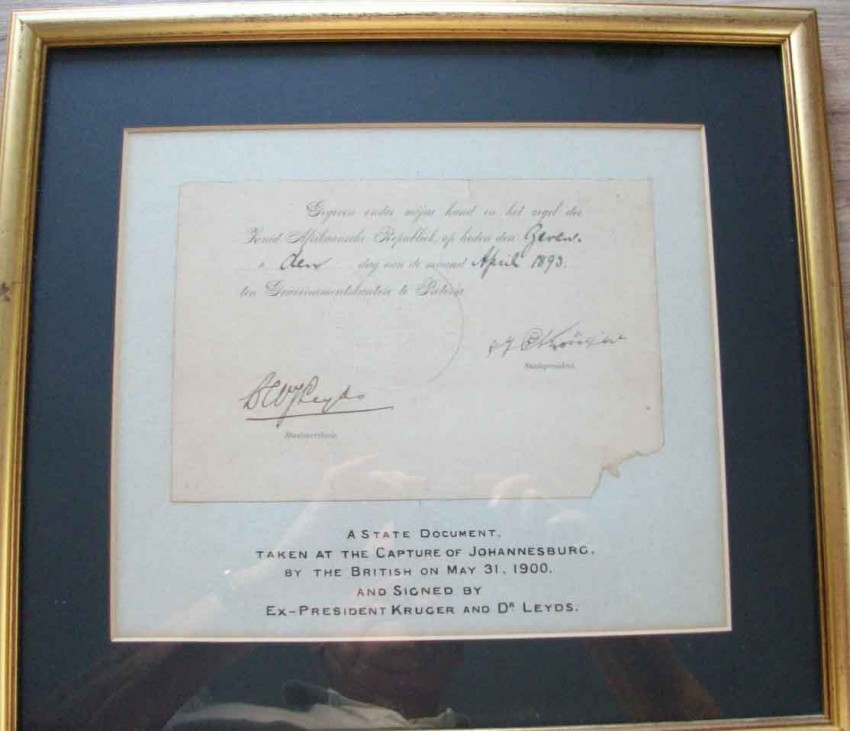 Gegeven onder mijne hand en het zegel der
Zuid-Afrikaansche Republiek, op heden den Zeven-
den dag van de maand April 1893.
ten Gouvernementskantore te Pretoria
Staatspresident.
Leyds
Staatssecretaris.
A STATE DOCUMENT,
TAKEN AT THE CAPTURE OF JOHANNESBURG,
BY THE BRITISH ON MAY 31, 1900.
AND SIGNED BY
EX-PRESIDENT KRUGER AND DR LEYDS.